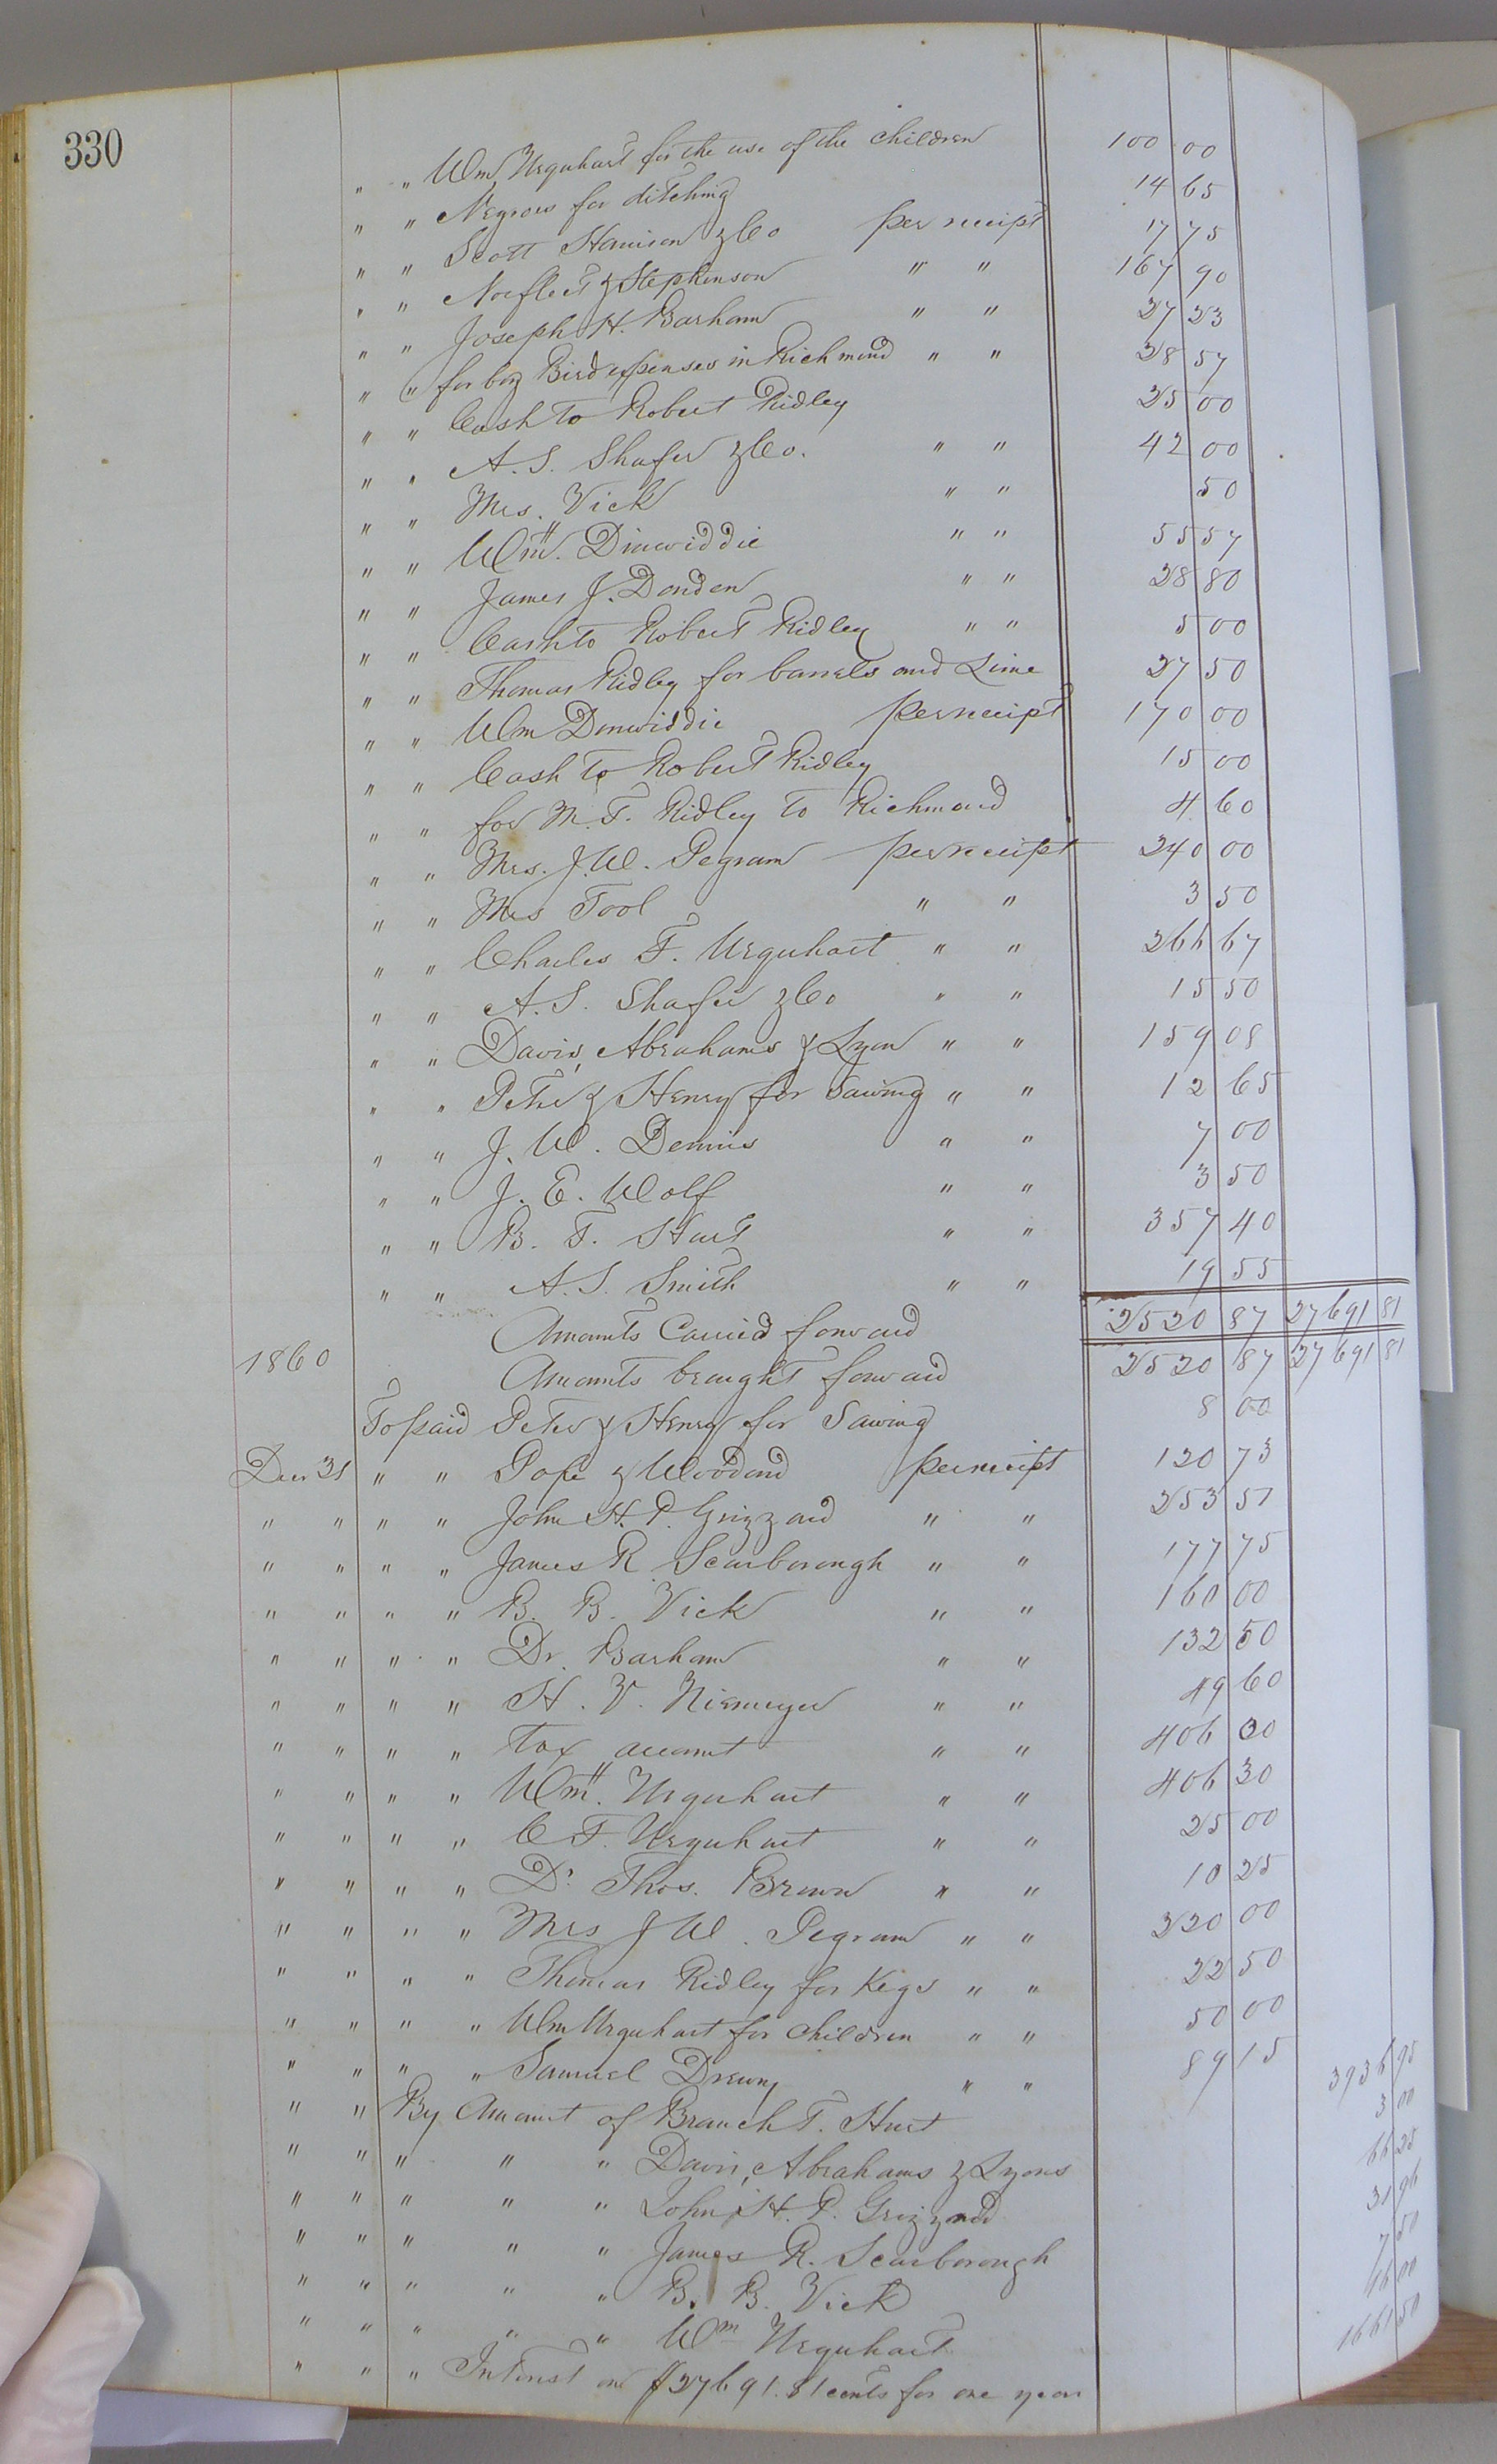 330
" " Wm Urquhart for the use of the Children 100 00
" " Negroes for ditching 14 65
" " Scott Harrison & Co per receipt 17 75
" " Norfleet & Stephenson " " 167 90
" " Joseph H. Barham " " 27 23
" " for boy Bird expenses in Richmond " " 28 57
" " Cash to Robert Ridley 25 00
" " A. S. Shafer & Co. " " 42 00
" " Mrs. Vick " " 50
" " Wm. Dinwiddie " " 55 57
" " James J. Donden " " 28 80
" " Cash to Robert Ridley " " 5 00
" " Thomas Ridley for barrels and Lime 27 50
" " Wm Dinwiddie per receipt 170 00
" " Cash to Robert Ridley 15 00
" " for M. T. Ridley to Richmond 4 60
" " Mrs. J. W. Pegram per receipt 240 00
" " Mrs Tool " " 3 50
" " Charles F. Urquhart " " 266 67
" " A. S. Shafer & Co " " 15 50
" " Davis, Abrahams & Lyon " " 159 08
" " Peter & Henry for Sawing " " 12 65
" " J. W. Dennis " " 7 00
" " J. E. Wolf " " 3 50
" " B. T. Hurt " " 357 40
" " A. S. Smith " " 19 55
Amounts Carried forward 2520 87 27691 81
1860 Amounts brought forward 2520 87 27691 81
To paid Peter & Henry for Sawing 8 00
Decr 31 " " Pope & Woodard per receipt 120 73
" " " " John H. P. Grizzard " " 253 51
" " " " James R Scarborough " " 177 75
" " " " B. B. Vick " " 160 00
" " " " Dr. Barham " " 132 50
" " " " H. V. Niemeyer " " 49 60
" " " " Tax account " " 406 30
" " " " Wm. Urquhart " " 406 30
" " " " C F. Urquhart " " 25 00
" " " " Dr Thos. Brown " " 10 25
" " " " Mrs J W. Pegram " " 220 00
" " " " Thomas Ridley for Kegs " " 22 50
" " " " Wm Urquhart for Children " " 50 00
" " " " Samuel Drewry " " 89 15
" " By Amount of Branch T. Hurt 3936 95
" " " " " Davis, Abrahams & Lyons 3 00
" " " " " John H. P. Grizzard 66 25
" " " " " James R. Scarborough 31 96
" " " " " B. B. Vick 7 50
" " " " " Wm Urquhart 00
" " " Interest on $27691.81 cents for one year 1661 50